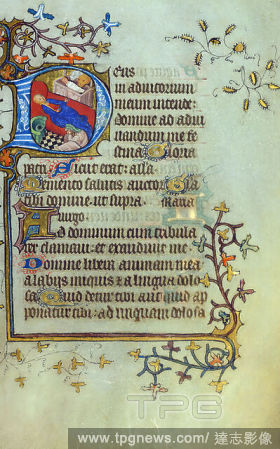 Deus
in adiutorium
meum intende:
Domine ad adiu
uandum me fe
stina. Gloria
patri. Sicut erat: alla.
Memento salutis auctor. Glo
tibi domine. ut supra. Maria
Ad dominum cum tribula
rer clamaui: et exaudiuit me.
Domine libera animam mea
a labijs iniquis et a lingua dolo
sa. Quid detur tibi aut quid ap
ponatur tibi: ad linguam dolosa
TPG
www.tpgnews.com/達志影像